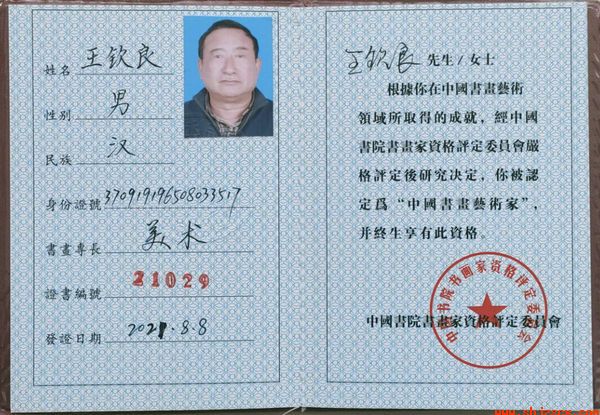 姓名 王钦良
性别 男
民族 汉
身份證號 370919196508033517
書畫專長 美术
證書編號 21029
發證日期 2021.8.8
王钦良 先生/女士
根據你在中國書畫藝術
領域所取得的成就，經中國
書院書畫家資格評定委員會嚴
格評定後研究决定，你被認
定爲“中國書畫藝術家”，
并終生享有此資格。
中国书院书画家资格评定委员会
中國書院書畫家資格評定委員會